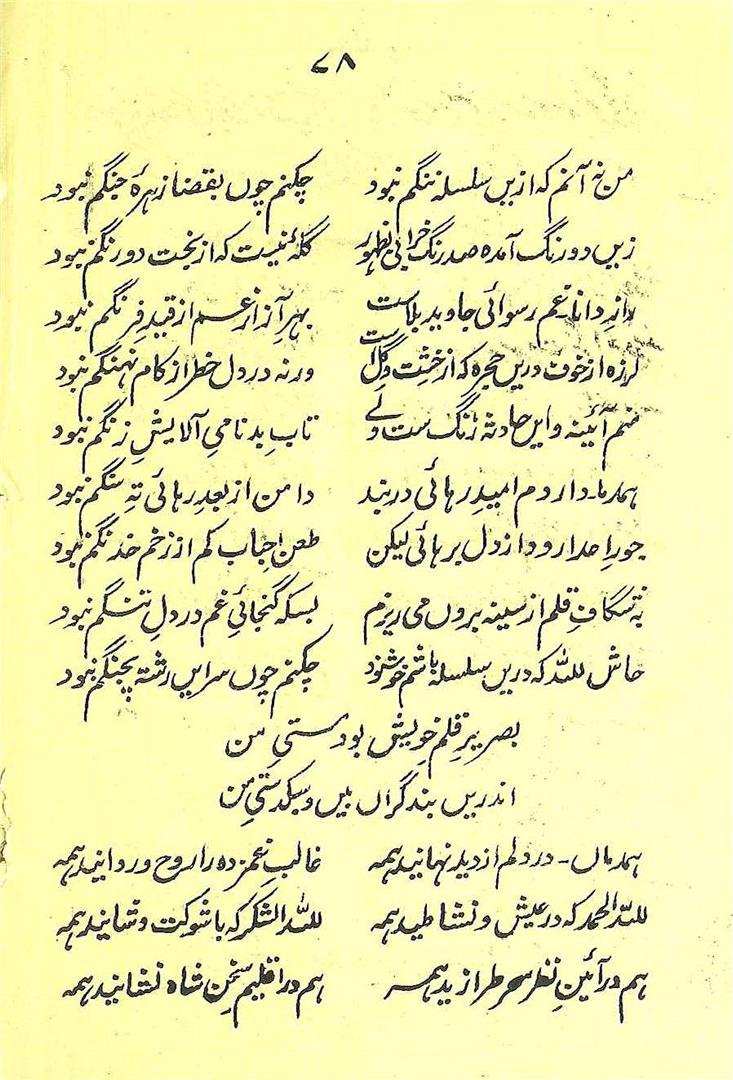 ۷۸
من نہ آنم کہ ازیں سلسلہ ننگم نبود چکنم چوں بقضا زہرۂ جنگم نبود
زیں دو رنگ آمدہ صد رنگ خرابی بظہور گلہ نیست کہ از بخت دو رنگم نبود
راز دانا غم رسوائی جاوید بلاست بہرِ آزار غم از قیدِ فرنگم نبود
لرزہ از خوف دریں حجرہ کہ از خشت و گِل است ورنہ در دل خطر از کام نہنگم نبود
منم آئینہ و ایں حادثہ زنگ ست ولے تابِ بدنامیِ آلایشِ زنگم نبود
ہمدما۔ دارد م امیدِ رہائی در بند دامن از بعدِ رہائی تہِ سنگم نبود
جورِ اعدا رود از دل برہائی لیکن طعنِ احباب کم از زخمِ خدنگم نبود
بہ شگافِ قلم از سینہ بروں می ریزم بسکہ گنجائیِ غم در دلِ تنگم نبود
حاش للہ کہ دریں سلسلہ باشم خوشنود چکنم چوں سر ایں رشتہ بچنگم نبود
بصریرِ قلمِ خویش بود مستیِ من
اندریں بندِ گراں بیں و سبکدستیِ من
ہمدماں۔ در دلم از دیدہ نہانید ہمہ غالبِ غمزدہ را روح و روانید ہمہ
للہ الحمد کہ در عیش و نشاطید ہمہ للہ الشکر کہ با شوکت و شانید ہمہ
ہم در آئینِ نظر سحر طرازید ہمہ ہم در اقلیمِ سخن شاہ نشانید ہمہ